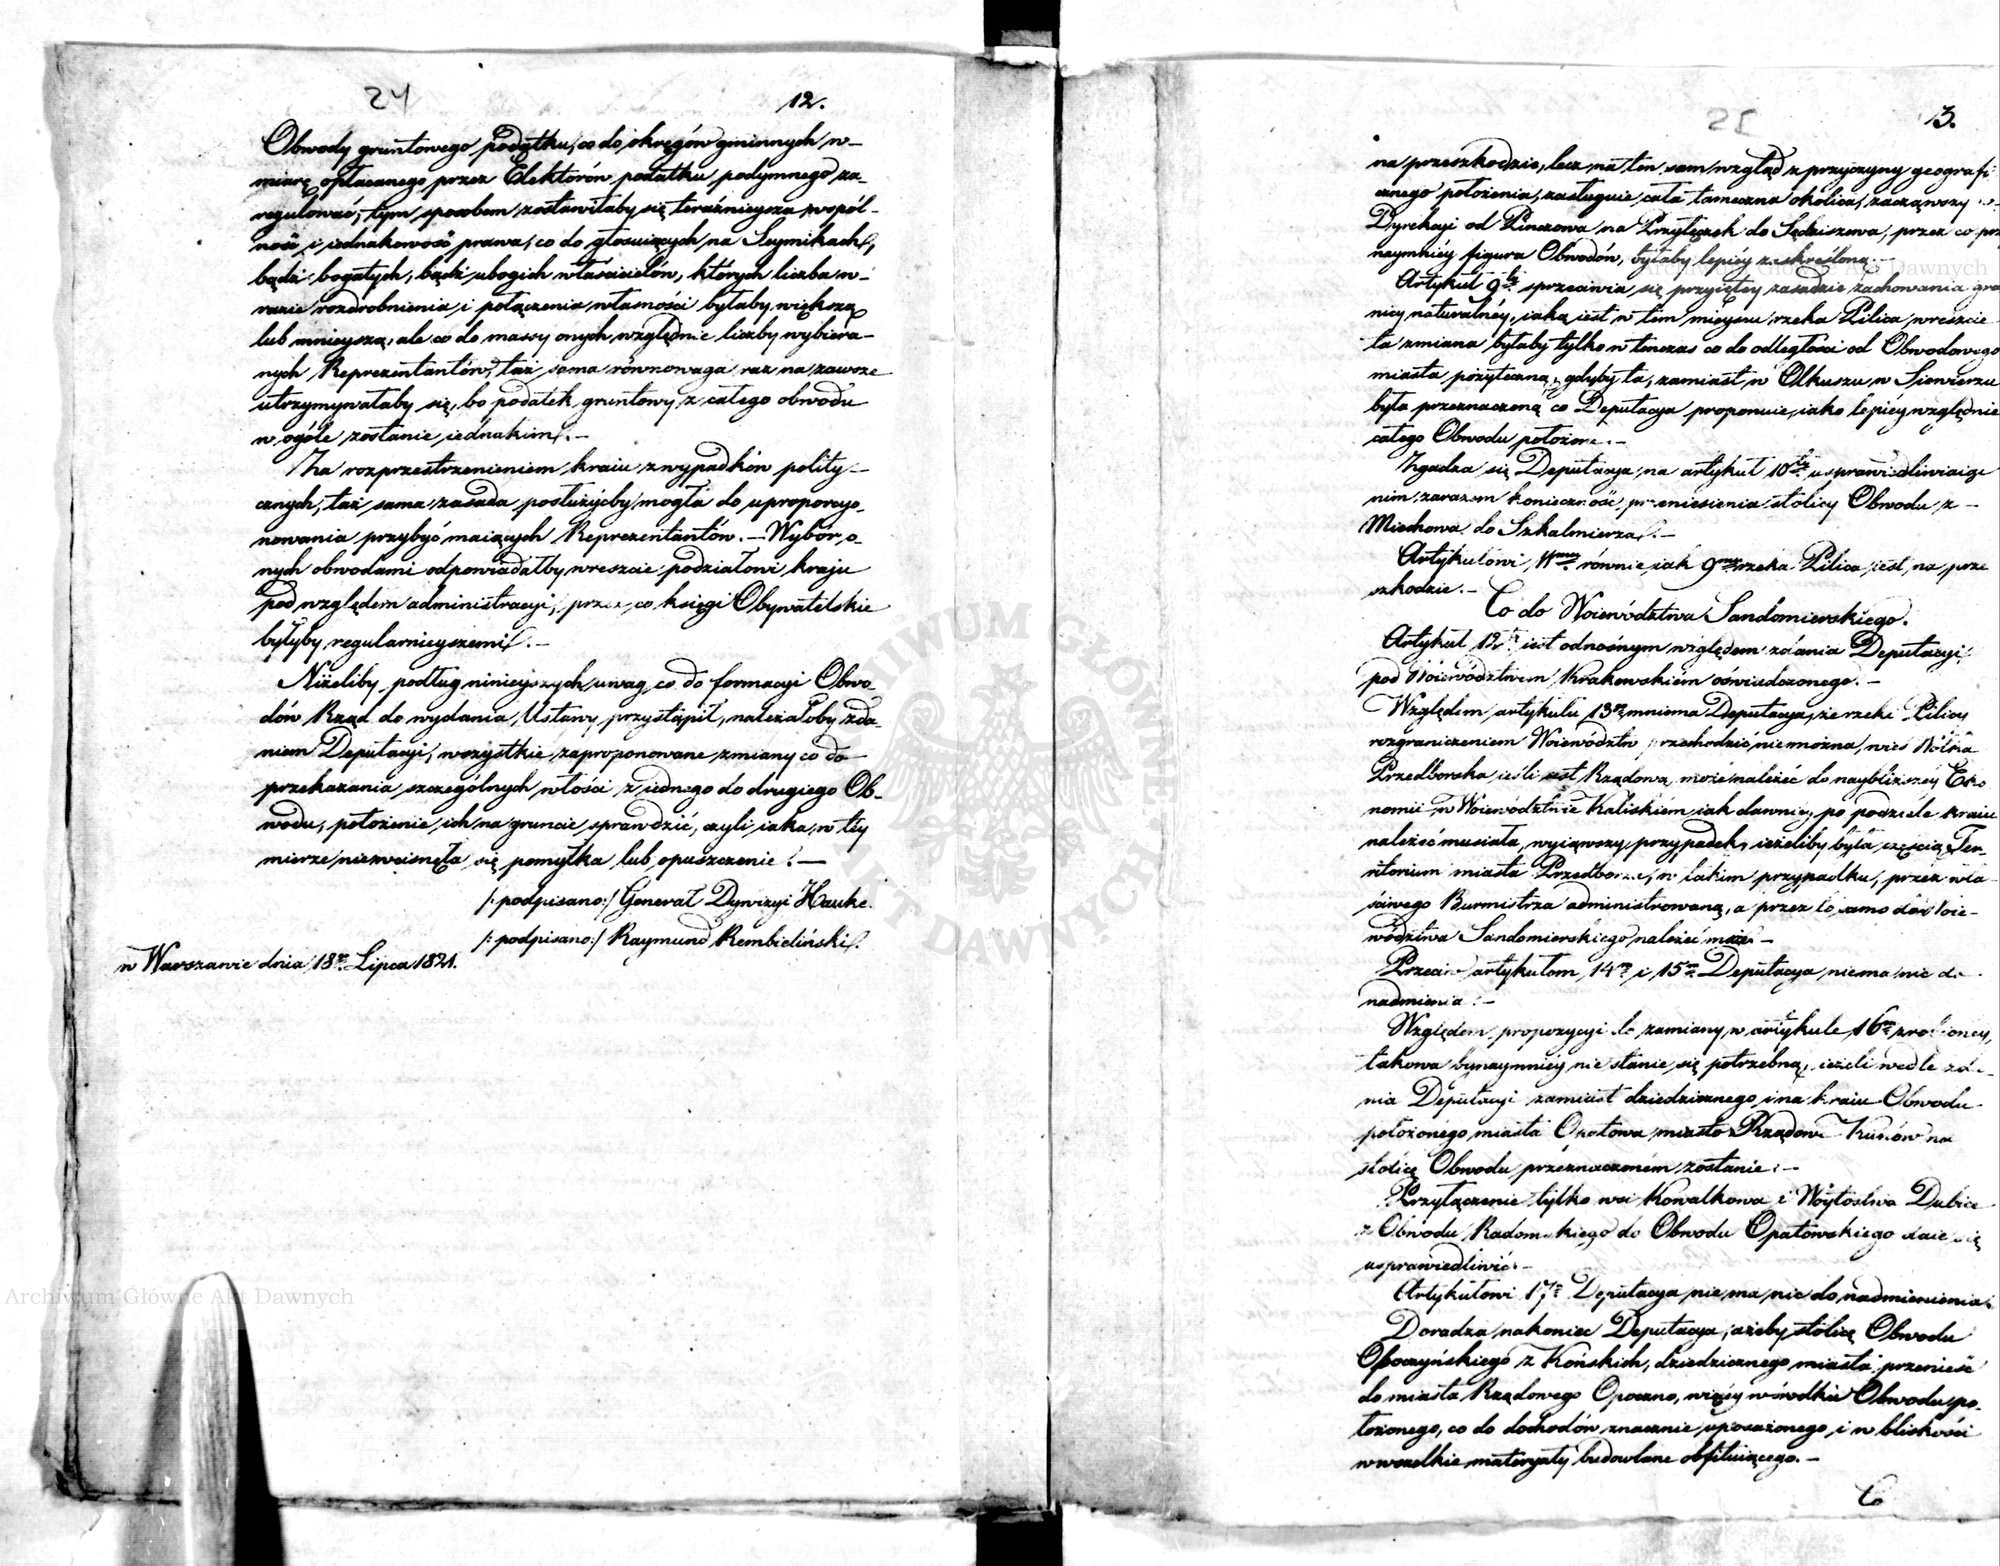 24
12.
Obwody gruntowego podatku, co do okręgów gminnych w-
miarę opłacanego przez Elektorów podatku podymnego za-
regulować, tym sposobem zostawiłaby się teraźnieysza wspól-
ność i iednakowość prawa, co do głosuiących na Seymikach,
bądź bogatych, bądź ubogich właścicielów, których liczba w-
razie rozdrobnienia i połączenia własności byłaby większą
lub mnieyszą, ale co do massy onych względnie liczby wybiera-
nych Reprezentantów, taż sama równowaga raz na zawsze
utrzymywałaby się, bo podatek gruntowy z całego obwodu
w ogóle zostanie iednakim. -
Za rozprzestrzenieniem kraiu z wypadków polity-
cznych, taż sama zasada posłużyćby mogła do uproporcyo-
nowania przybyć maiących Reprezentantów. - Wybor o-
nych obwodami odpowiadałby wreszcie podziałowi kraju
pod względem administracyi, przez co księgi Obywatelskie
byłyby regularnieyszemi. -
Niżeliby podług ninieyszych uwag co do formacyi Obwo-
dów Rząd do wydania Ustawy przystąpił, należałoby zda-
niem Deputacyi, wszystkie zaproponowane zmiany co do
przekazania szczególnych włości z iednego do drugiego Ob-
wodu, położenie ich na gruncie sprawdzić, czyli iaka w tey
mierze niewcisnęła się pomyłka lub opuszczenie. -
/:podpisano:/ Generał Dywizyi Hauke.
/:podpisano:/ Raymund Rembieliński.
w Warszawie dnia 18º Lipca 1821.
25
13.
na przeszkodzie, lecz na tén sam wzgląd z przyczyny geografi
cznego położenia, zasługuie cała tameczna okolica, zacząwszy w-
Dyrekcyi od Pinczowa na Przyłęczek do Sędziszewa, przez co prz
naymniéy figura Obwodów, byłaby lepiéy zaskreślona. -
Artykuł 9ty sprzeciwia się przyiętey zasadzie zachowania gra
nicy naturalnéy, iaką iest w tem mieyscu rzeka Pilica, wreszcie
ta zmiana byłaby tylko w tenczas co do odległości od Obwodowego
miasta pożyteczną, gdyby ta, zamiast w Olkuszu w Siewierzu
była przeznaczoną co Deputacya proponuie, iako lepiéy względnie
całego Obwodu położone. -
Zgadza się Deputacya na artykuł 10ty usprawiedliwiaiąc
nim zarazem konieczność przeniesienia stolicy Obwodu z -
Miechowa do Szkalmierza. -
Artykułowi 11mu równie iak 9mu rzeka Pilica iest na prze
szkodzie. -
Co do Woiewództwa Sandomierskiego.
Artykuł 12ty iest odnośnym względem zdania Deputacyi
pod Woiewództwem Krakowskiém oświadczonego. -
Względem artykułu 13go mniema Deputacya, że rzeki Pilicy
rozgraniczeniem Woiewództw przechodzić nie można, wieś Wólka
Przedborska ieśli iest Rządową, może należéć do naybliższéy Eko
nomii w Woiewództwie Kaliskiém iak dawniéy po podziele kraiu
należéć musiała, wyiąwszy przypadek, ieżeliby była częścią Ter-
ritorium miasta Przedborza, w takim przypadku, przez wła
ściwego Burmistrza administrowaną, a przez to samo do Woie-
wództwa Sandomierskiego należéć może -
Przeciw artykułom 14mu i 15mu Deputacya niema nic do
nadmienia. -
Względem propozycyi do zamiany w artykule 16m zrobioney,
takowa bynaymniéy nie stanie się potrzebną, ieżeli wedle zda-
nia Deputacyi zamiast dziedzicznego i na kraiu Obwodu
położonégo miasta Opatowa miasto Rządowe Kunów na
stolicę Obwodu przeznaczoném zostanie. -
Przyłączenie tylko wsi Kowalkowa i Woytostwa Dubice
z Obwodu Radomskiego do Obwodu Opatowskiego daie się
usprawiedliwić. -
Artykułowi 17º Deputacya niema nic do nadmienienia.
Doradza nakoniec Deputacya, ażeby stolicę Obwodu
Opoczyńskiego z Końskich, dziedzicznego miasta przenieść
do miasta Rządowego Opoczno, więcéy wśrodku Obwodu po-
łożonego, co do dochodów znacznie uposażonego, i w bliskości
w wszelkie materyały budowlane obfituiącego. -
Co
Archiwum Główne Akt Dawnych
Archiwum Główne Akt Dawnych
ARCHIWUM GŁÓWNE
AKT DAWNYCH